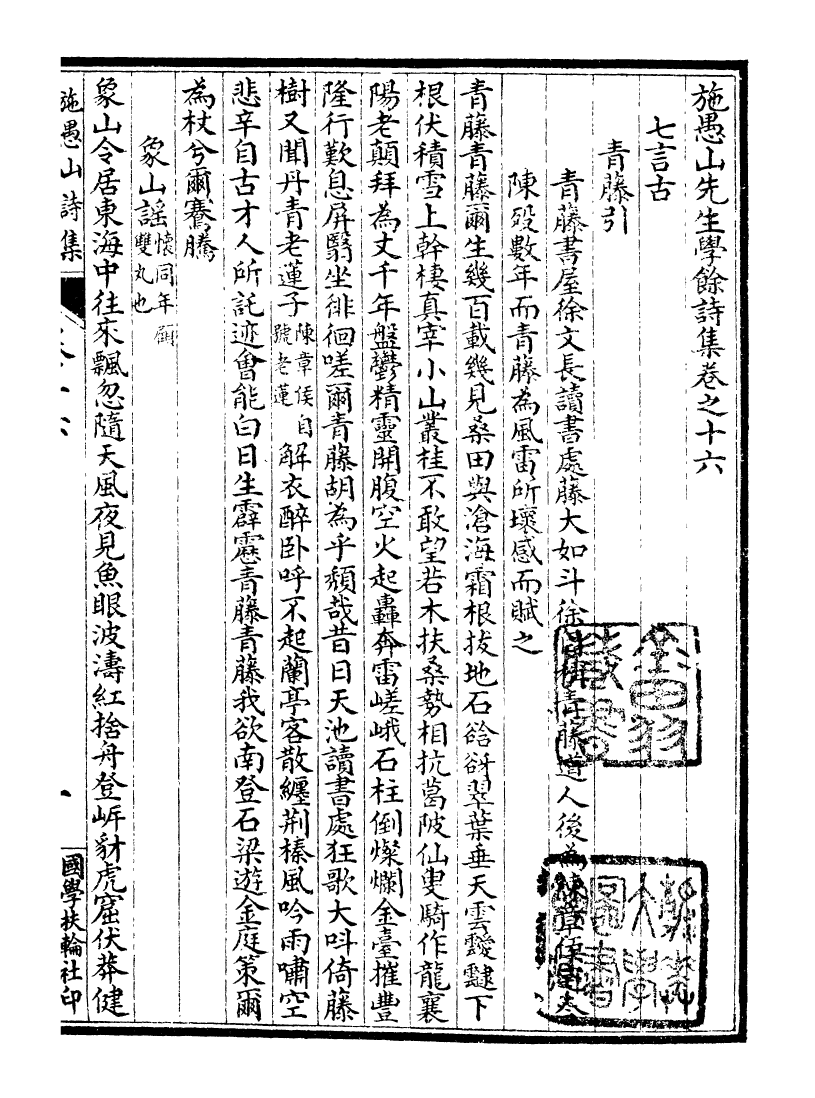 施愚山先生學餘詩集卷之十六
七言古
青藤引
青藤書屋徐文長讀書處藤大如斗徐自稱青藤道人後為陳章侯居矣
陳歿數年而青藤為風雷所壞感而賦之
青藤青藤爾生幾百載幾見桑田與滄海霜根拔地石谽谺翠葉垂天雲靉靆下
根伏積雪上幹棲真宰小山叢桂不敢望若木扶桑勢相抗葛陂仙叟騎作龍襄
陽老顛拜為丈千年盤鬱精靈開腹空火起轟奔雷嵯峨石柱倒燦爛金臺摧豐
隆行歎息屏翳坐徘徊嗟爾青藤胡為乎頹哉昔日天池讀書處狂歌大呌倚藤
樹又聞丹青老蓮子陳章侯自號老蓮解衣醉卧呼不起蘭亭客散纏荆榛風吟雨嘯空
悲辛自古才人所託迹會能白日生霹靂青藤青藤我欲南登石梁遊金庭策爾
為杖兮爾騫騰
象山謠懷同年顧雙丸也
象山令居東海中往來飄忽隨天風夜見魚眼波濤紅捨舟登岍豺虎窟伏莽健
施愚山詩集
卷十六
一
國學扶輪社印